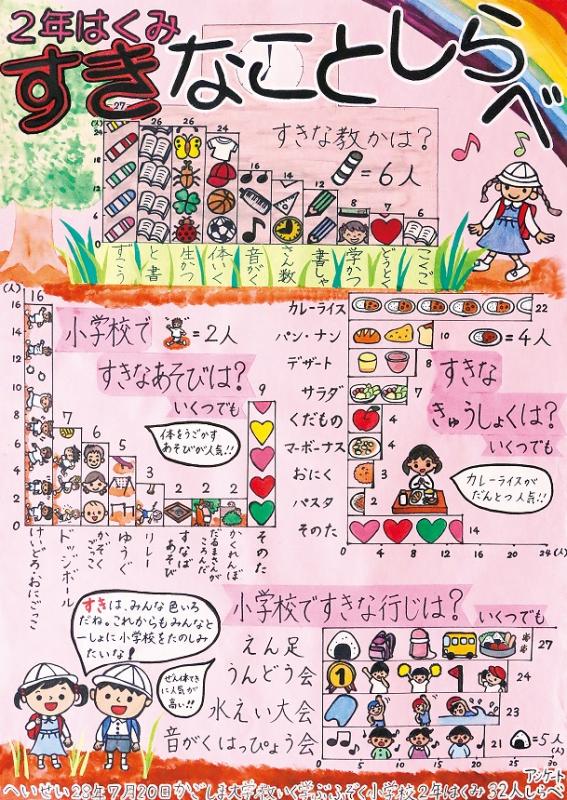 ２年はくみ
すきなことしらべ
すきな教かは？
＝6人
(人)
24
18
12
6
0
27
26
26
24
16
14
12
8
7
6
ずこう
と書
生かつ
体いく
音がく
さん数
書しゃ
学かつ
どうとく
こくご
小学校で
＝2人
すきなあそびは？
いくつでも
体をうごかす
あそびが人気！！
(人)
16
14
12
10
8
6
4
2
0
16
7
6
5
3
2
2
2
9
けいどろ・おにごっこ
ドッジボール
かぞごっこ
ゆうぐ
リレー
すなば
あそび
だるまさんが
ころんだ
かくれんぼ
そのた
すきな
きゅうしょくは？
いくつでも
＝4人
カレーライス
22
パン・ナン
10
デザート
8
サラダ
7
くだもの
4
マーボーナス
4
おにく
3
パスタ
2
そのた
14
0
4
8
12
16
20
24(人)
カレーライスが
だんとつ人気！！
小学校ですきな行じは？
いくつでも
えん足
27
うんどう会
24
水えい大会
23
音がくはっぴょう会
21
＝5人
(人)
すきは、みんな色いろ
だね。これからもみんなと
いっしょに小学校をたのしみ
たいな！
ぜん体てき
に人気が
高い！！
アンケート
へいせい28年7月20日かごしま大学教いく学ぶふぞく小学校２年はくみ32人しらべ